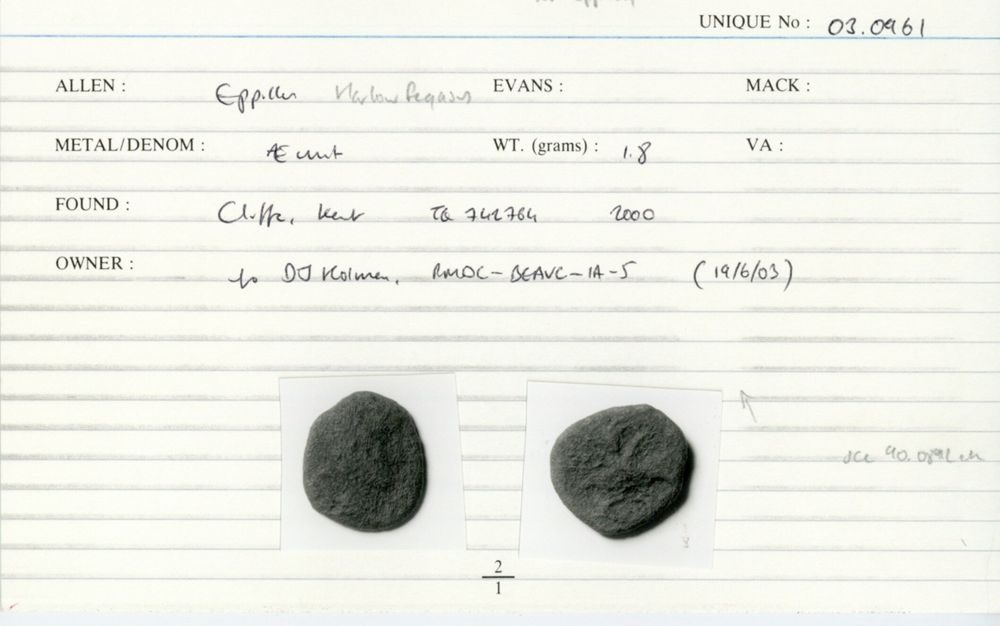 UNIQUE No : 03.0961
ALLEN : Eppillus Harlow Pegasus EVANS : MACK :
METAL/DENOM : Æ unit WT. (grams) : 1.8 VA :
FOUND : Cliffe, Kent TQ 742764 2000
OWNER : DJ Holman, (19/6/03)
see
2
1